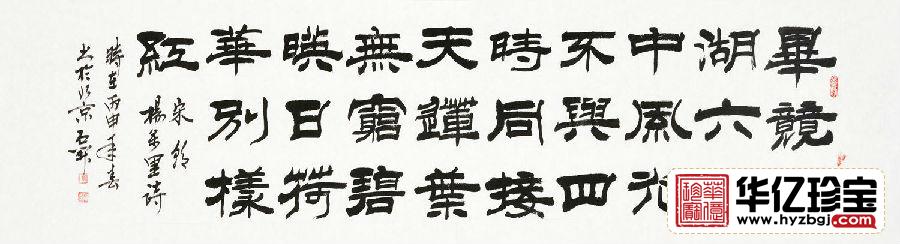 畢竟
湖六
中風光
不與四
時同接
天蓮葉
無窮碧
暎日荷
華別樣
紅
宋
楊万里詩
時在丙申年春
书於北京
华亿珍宝
www.hyzbgj.com